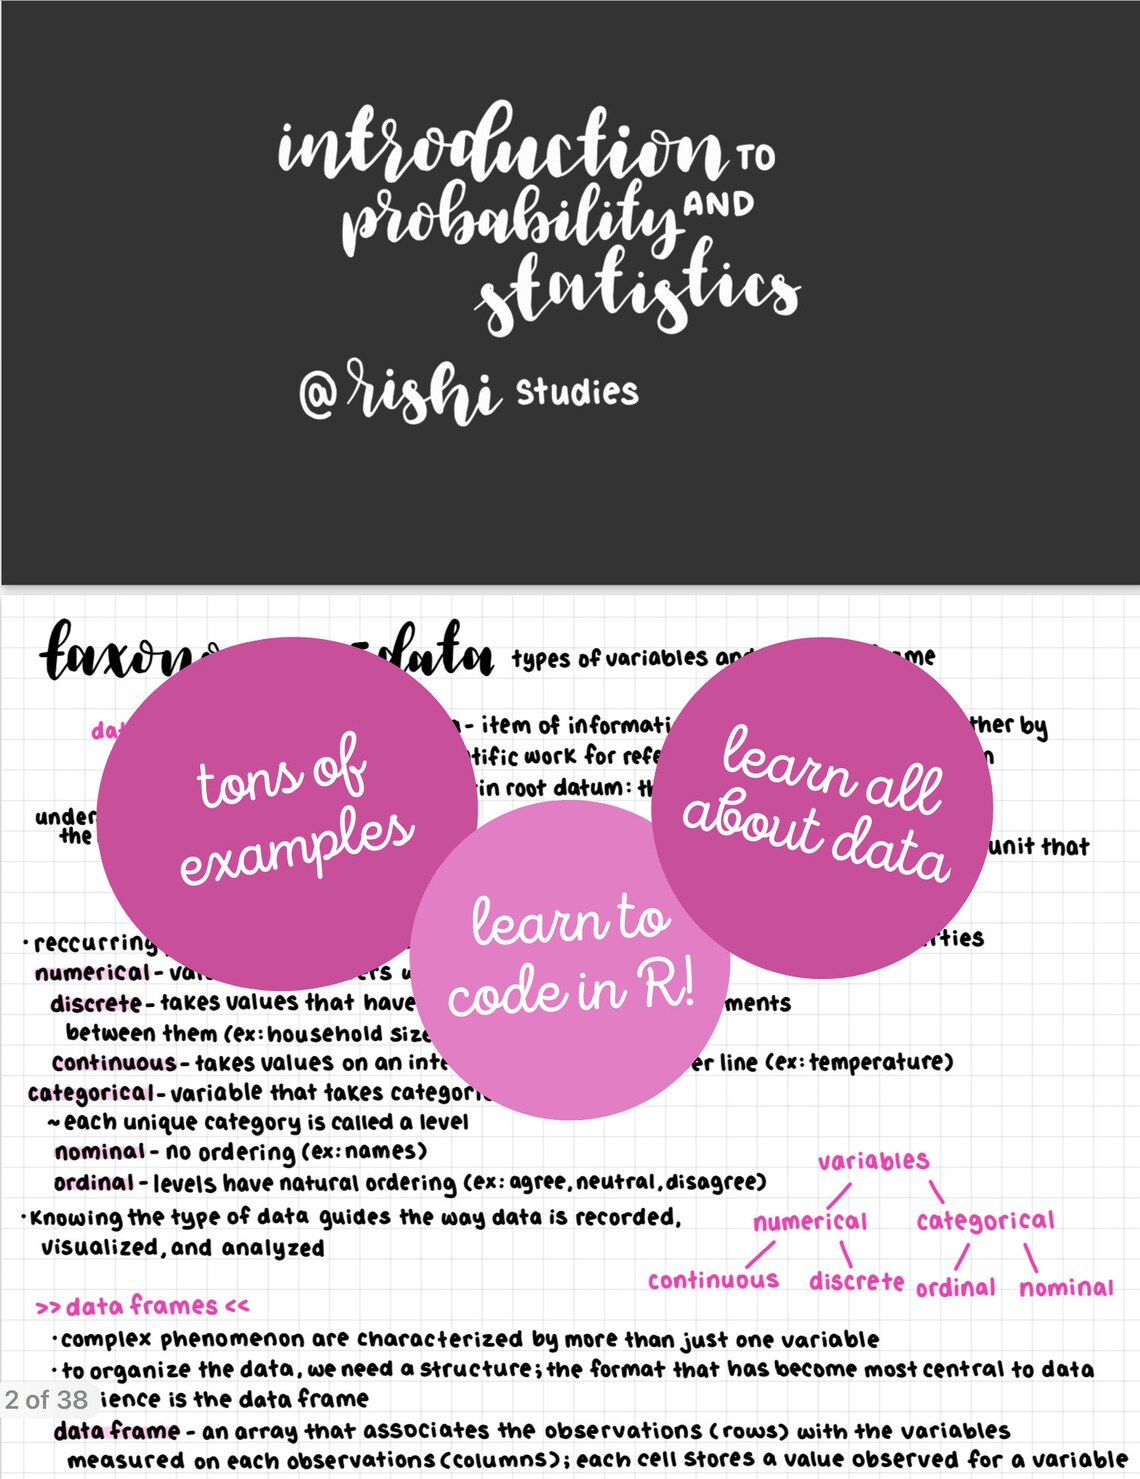 introduction TO
probability AND
statistics
@rishi studies
data types of variables and
tons of
examples
learn to
code in R!
learn all
about data
- item of
work for
in root datum:
under
the
unit that
• reccurring
numerical -
discrete - takes values that have
between them (ex: household size
continuous - takes values on an line (ex: temperature)
categorical - variable that takes
~ each unique category is called a level
nominal - no ordering (ex: names)
ordinal - levels have natural ordering (ex: agree, neutral, disagree)
• Knowing the type of data guides the way data is recorded,
visualized, and analyzed
variables
numerical categorical
continuous discrete ordinal nominal
>> data frames <<
• complex phenomenon are characterized by more than just one variable
• to organize the data, we need a structure; the format that has become most central to data
2 of 38 ience is the data frame
data frame - an array that associates the observations (rows) with the variables
measured on each observations (columns); each cell stores a value observed for a variable